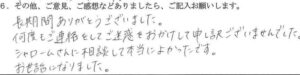 6. その他、ご意見、ご感想などありましたら、ご記入お願いします。
長期間ありがとうございました。
何度もご連絡をしてご迷惑をおかけして申し訳ございませんでした。
シャロームさんに相談して本当によかったです。
お世話になりました。